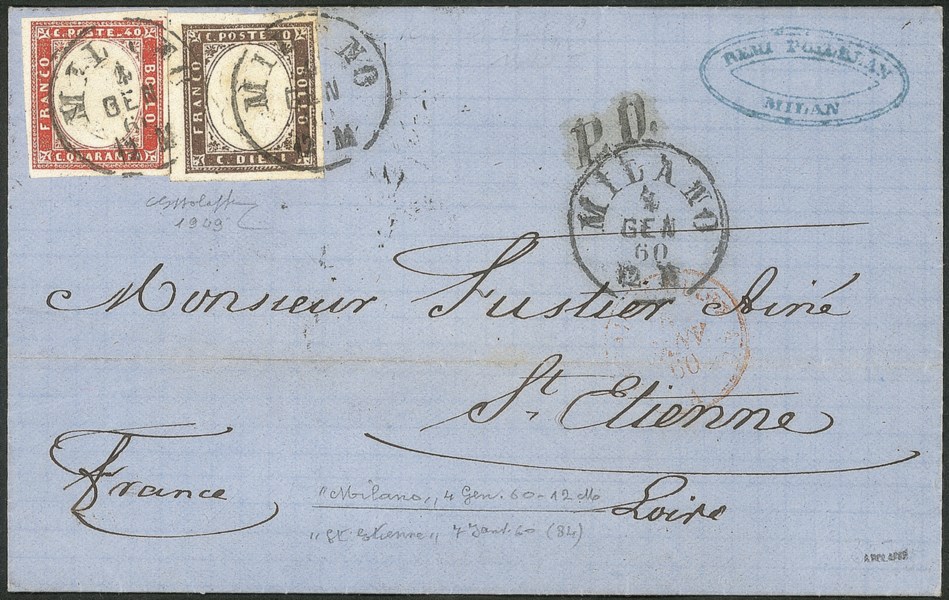 C. POSTE. 40
FRANCO
BOLLO
C. QUARANTA
C. POSTE 10
FRANCO
BOLLO
C. DIECI
MILANO
4
GEN
60
12. M
MILANO
GEN
12. M
REMI
MILAN
P.D.
MILANO
4
GEN
60
12. M
1909
60
Monsieur Fustier Ainé
St. Etienne
France
Loire
"Milano" 4 Gen. 60 - 12 M
"St. Etienne" 7 Janv. 60 (84)